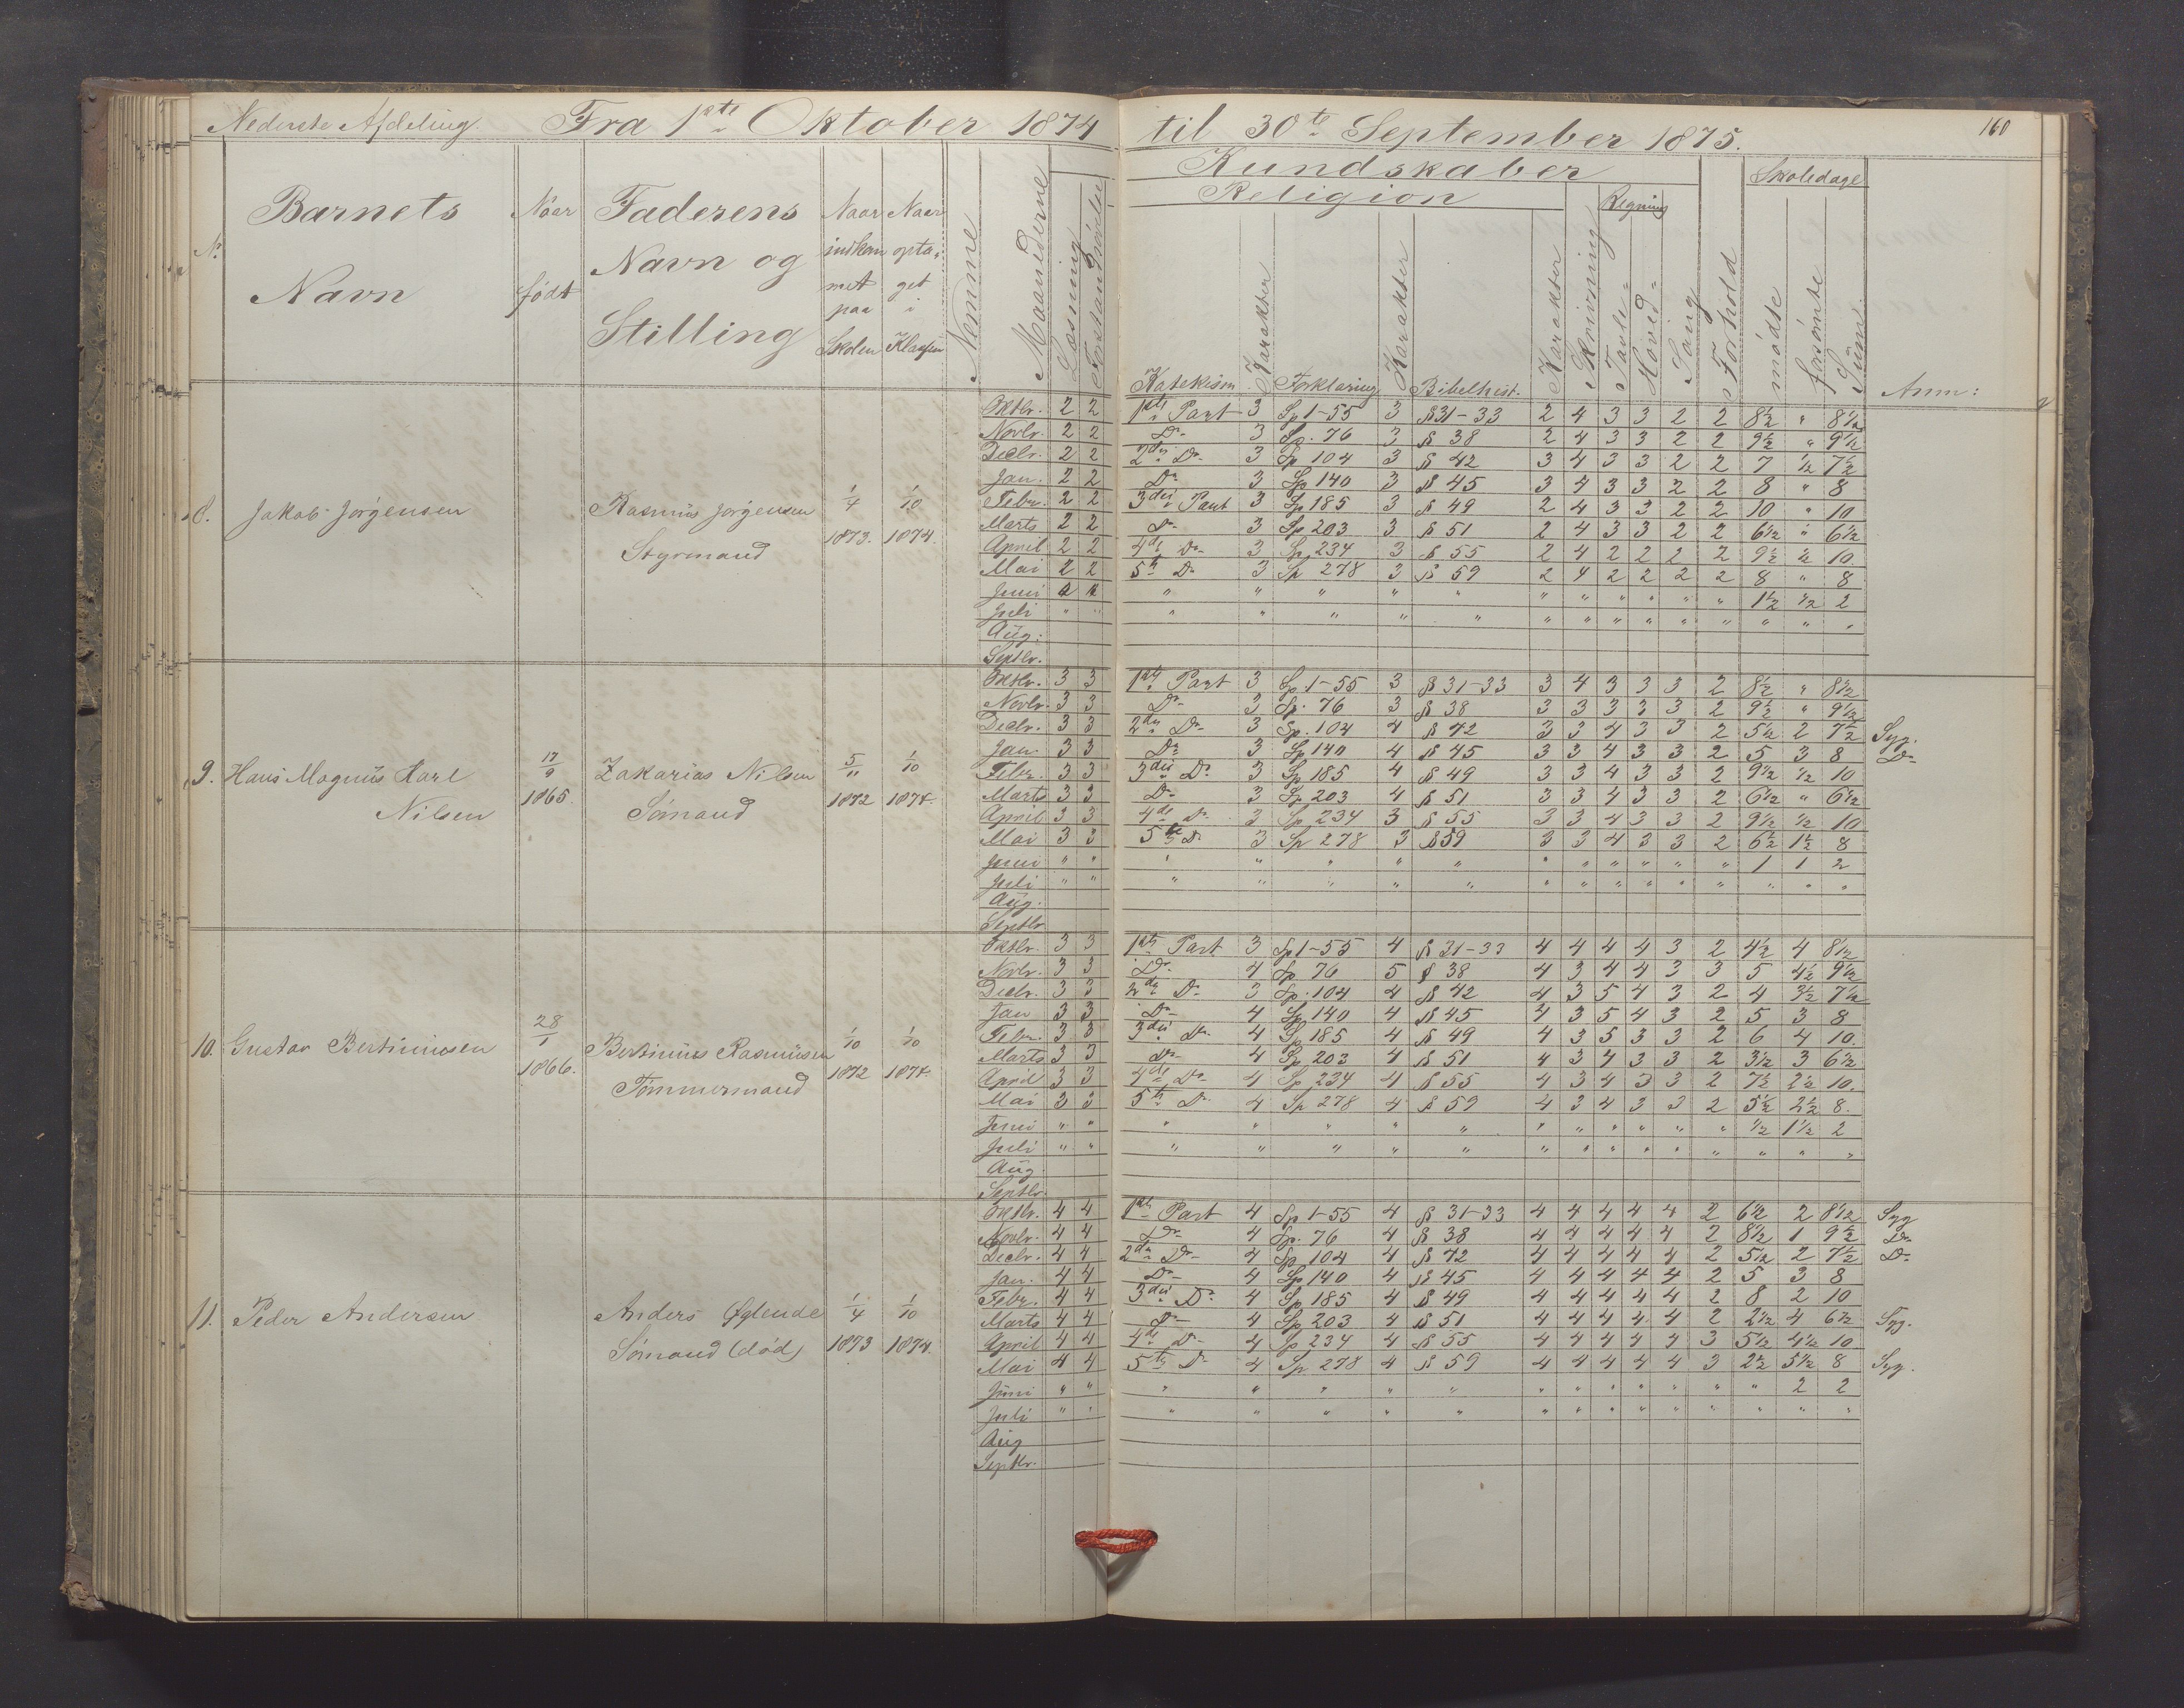 Nederste Afdeling. Fra 1ste Oktober 1874 til 30te September 1875. 160
Kundskaber Skoledage
Religion Regning
No. Barnets Navn Naar født Faderens Navn og Stilling Naar indkommet paa Skolen Naar optaget i Klassen Nemme Maanederne Læsning Forstandsøvelse Katekism. Karakter Forklaring Karakter Bibelhist. Karakter Skrivning Tavle- Hoved- Sang Forhold mødte forsømte Sum Anm:
8. Jakob Jørgensen Rasmüs Jørgensen Styrmand 1/4 1873. 1/10 1874.
Oktbr. 2 2 1ste Part 3 Sp 1-55 3 § 31-33 2 4 3 3 2 2 8½ " 8½
Novbr. 2 2 Do 3 Sp. 76 3 § 38 2 4 3 3 2 2 9½ " 9½
Decbr. 2 2 2den Do 3 Sp 104 3 § 42 3 4 3 3 2 2 7 ½ 7½
Jan. 2 2 Do 3 Sp 140 3 § 45 3 4 3 3 2 2 8 " 8
Febr. 2 2 3die Part 3 Sp 185 3 § 49 2 4 3 3 2 2 10 " 10
Marts 2 2 Do 3 Sp 203 3 § 51 2 4 3 3 2 2 6½ " 6½
April 2 2 4de Do 3 Sp 234 3 § 55 2 4 2 2 2 2 9½ ½ 10
Mai 2 2 5te Do 3 Sp 278 3 § 59 2 4 2 2 2 2 8 " 8
Juni " " " " " " " " " " " " " 1½ ½ 2
Juli " " " " " " " " " " " " " " " "
Aüg:
Septbr.
9. Hans Magnüs Karl Nilsen 17/9 1865. Zakarias Nilsen Sømand 5/11 1872 1/10 1874.
Oktbr. 3 3 1ste Part 3 Sp. 1-55 3 § 31-33 3 4 3 3 3 2 8½ " 8½
Novbr. 3 3 Do 3 Sp. 76 3 § 38 3 3 3 3 3 2 9½ " 9½
Decbr. 3 3 2den Do 3 Sp. 104 4 § 42 3 3 4 3 3 2 5½ 2 7½ Syg.
Jan. 3 3 Do 3 Sp 140 4 § 45 3 3 4 3 3 2 5 3 8 Do
Febr. 3 3 3die Do 3 Sp 185 4 § 49 3 3 4 3 3 2 9½ ½ 10
Marts 3 3 Do 3 Sp 203 4 § 51 3 3 4 3 3 2 6½ " 6½
April 3 3 4de Do 3 Sp 234 3 § 55 3 3 4 3 3 2 9½ ½ 10
Mai 3 3 5te Do 3 Sp 278 3 § 59 3 3 4 3 3 2 6½ 1½ 8
Juni " " " " " " " " " " " " " 1 1 2
Juli " " " " " " " " " " " " " " " "
Aüg.
Septbr
10. Gustav Bertinüsen 28/1 1866. Bertinüs Rasmüsen Tømmermand 1/10 1872 1/10 1874.
Oktbr. 3 3 1ste Part 3 Sp 1-55 4 § 31-33 4 4 4 4 3 2 4½ 4 8½
Novbr. 3 3 Do 4 Sp 76 5 § 38 4 3 4 4 3 3 5 4½ 9½
Decbr. 3 3 2den Do 3 Sp. 104 4 § 42 4 3 5 4 3 2 4 3½ 7½
Jan 3 3 Do 4 Sp 140 4 § 45 4 3 5 4 3 2 5 3 8
Febr. 3 3 3die Do 4 Sp 185 4 § 49 4 3 5 3 3 2 6 4 10.
Marts 3 3 Do 4 Sp 203 4 § 51 4 3 4 3 3 2 3½ 3 6½
April 3 3 4de Do 4 Sp 234 4 § 55 4 3 4 3 3 2 7½ 2½ 10.
Mai 3 3 5te Do 4 Sp 278 4 § 59 4 3 4 3 3 2 5½ 2½ 8.
Juni " " " " " " " " " " " " " ½ 1½ 2
Juli " " " " " " " " " " " " " " " "
Aüg
Septbr.
11. Peder Andersen Anders Øglende Sømand (død) 1/4 1873 1/10 1874.
Oktbr. 4 4 1ste Part 4 Sp 1-55 4 § 31-33 4 4 4 4 4 2 6½ 2 8½ Syg
Novbr. 4 4 Do 4 Sp. 76 4 § 38 4 4 4 4 4 2 8½ 1 9½ Do
Decbr. 4 4 2den Do 4 Sp 104 4 § 42 4 4 4 4 4 2 5½ 2 7½ Do
Jan. 4 4 Do 4 Sp 140 4 § 45 4 4 4 4 4 2 5 3 8
Febr. 4 4 3die Do 4 Sp 185 4 § 49 4 4 4 4 4 2 8 2 10
Marts 4 4 Do 4 Sp 203 4 § 51 4 4 4 4 4 2 2½ 4 6½ Syg.
April 4 4 4de Do 4 Sp 234 4 § 55 4 4 4 4 4 3 5½ 4½ 10
Mai 4 4 5te Do 4 Sp 278 4 § 59 4 4 4 4 4 3 2½ 5½ 8 Syg.
Jüni " " " " " " " " " " " " " " 2 2
Juli " " " " " " " " " " " " " " " "
Aüg
Septbr.